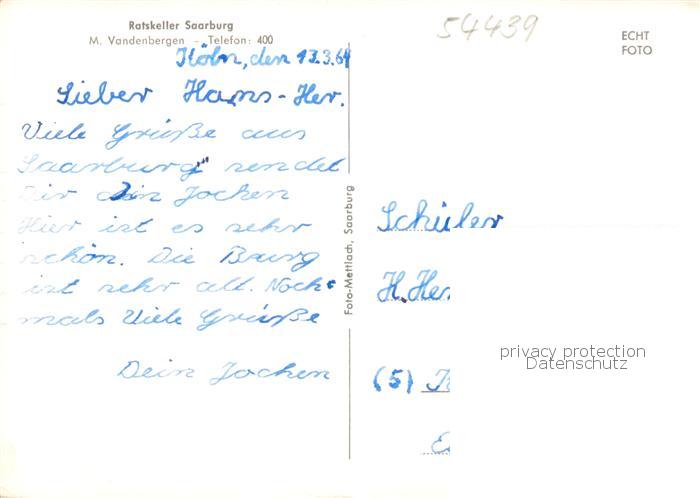 Ratskeller Saarburg
M. Vandenbergen - Telefon: 400
54439
ECHT
FOTO
Köln, den 13.3.64
Lieber Hans-Her.
Viele Grüße aus
Saarburg sendet
Dir Dein Jochen
Hier ist es sehr
schön. Die Burg
ist sehr alt. Noch-
mals Viele Grüße
Dein Jochen
Foto-Mettlach, Saarburg
Schüler
H. Her
(5) K
E
privacy protection
Datenschutz